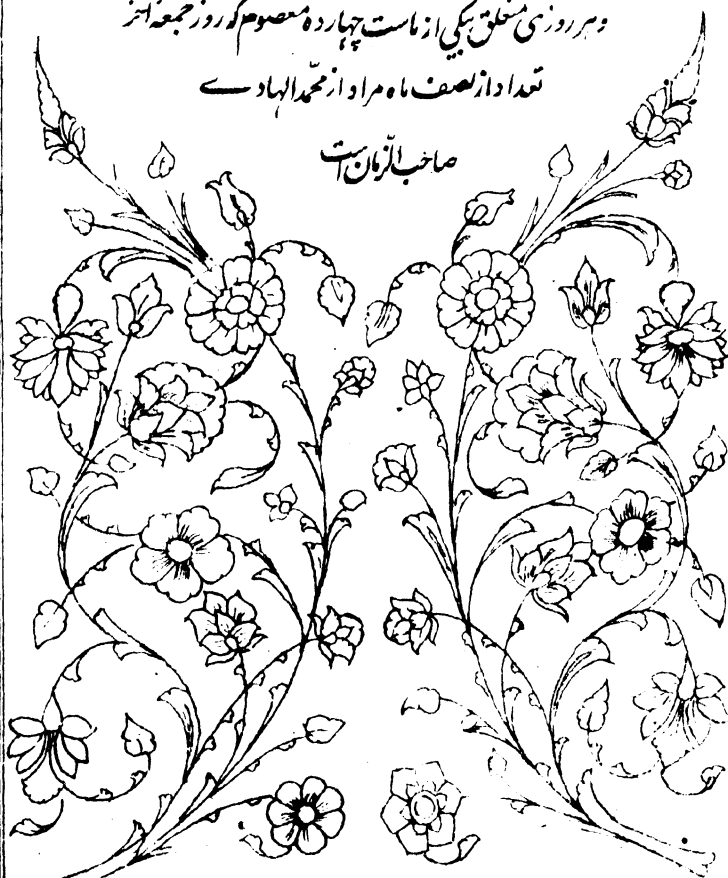 و هر روزی متعلق بیکی از ماست چهارده معصوم که روز جمعه آخر
تعداد از نصف ماه مراد از محمّد الهادی
صاحب الزّمان است